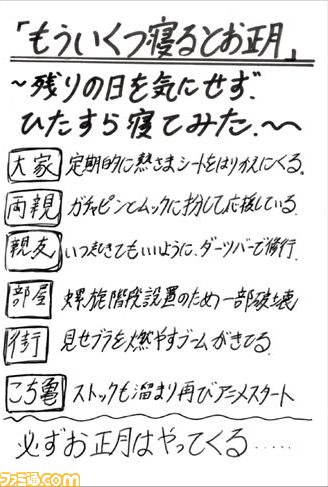 「もういくつ寝るとお正月」
〜残りの日を気にせず、
ひたすら寝てみた.〜
大家 定期的に熱さまシートをはりかえにくる.
両親 ガチャピンとムックに扮して応援している.
親友 いつ起きてもいいように、ダーツバーで修行.
部屋 螺旋階段設置のため一部破壊
街 見せブラを燃やすブームがきてる.
こち亀 ストックも溜まり再びアニメスタート
必ずお正月はやってくる.....
ファミ通.com